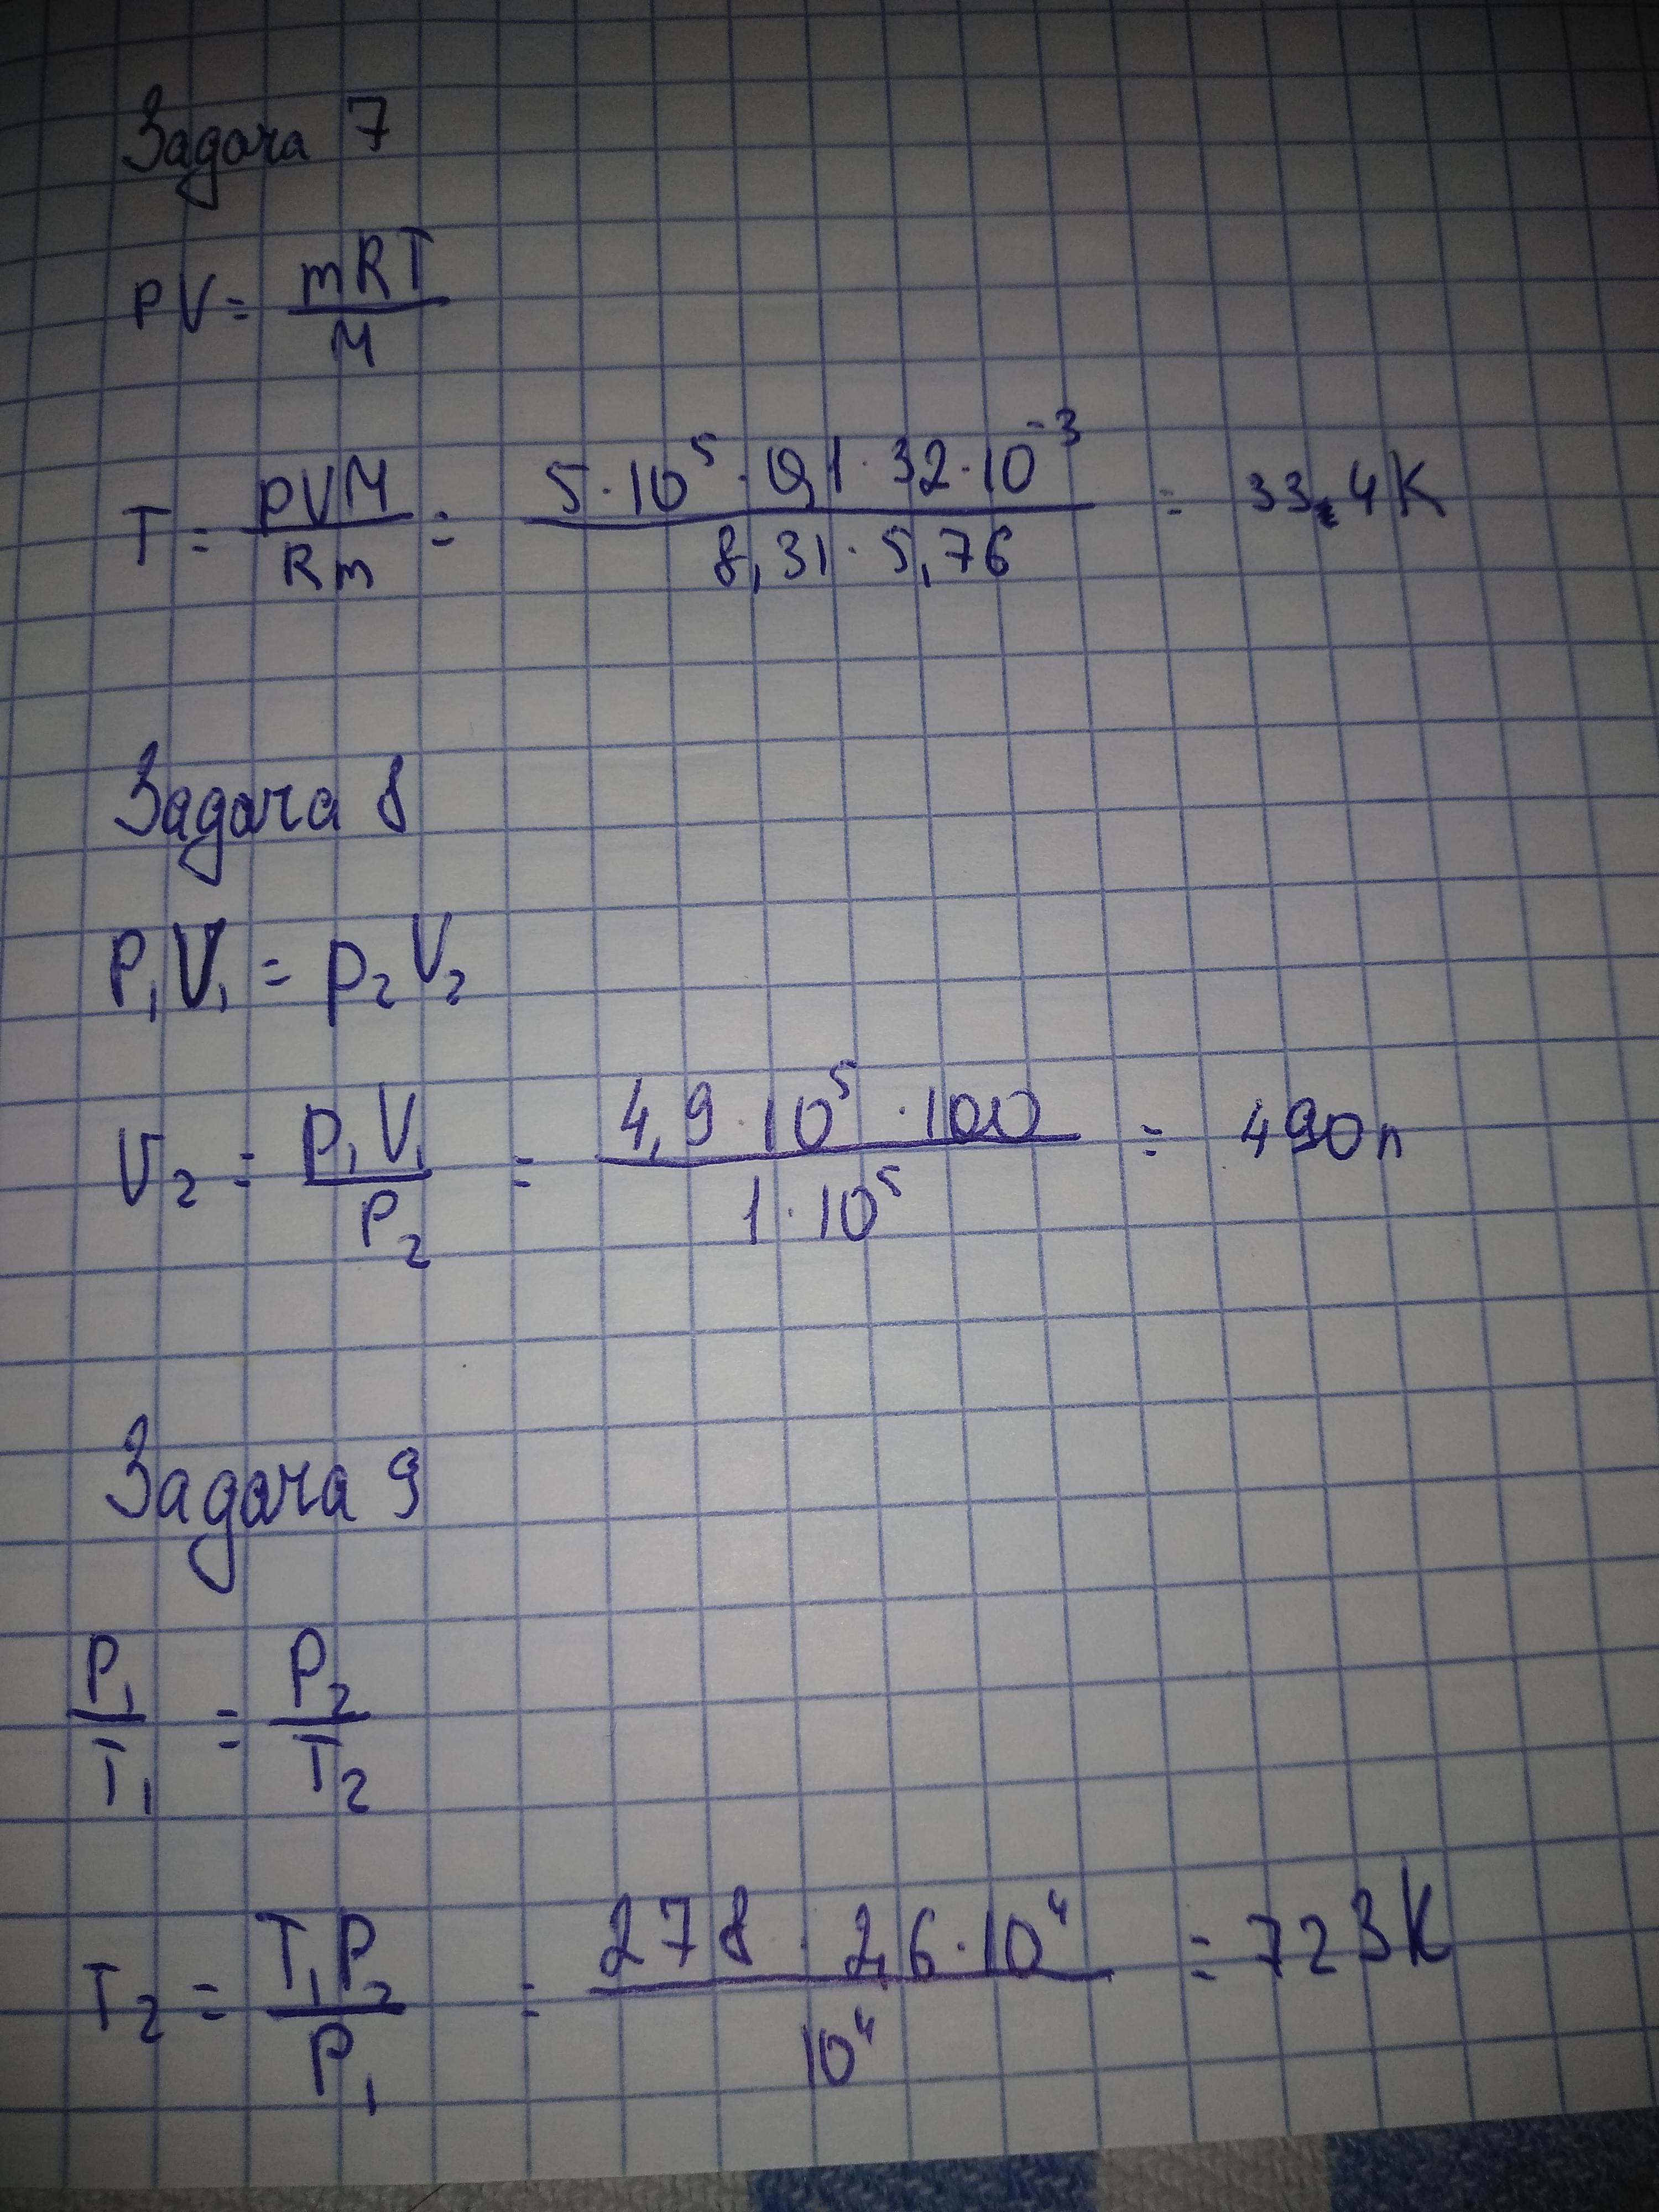 Задача 7
PV = mRT / M
T = pVM / Rm = 5·10⁵·0,1·32·10⁻³ / 8,31·5,76 = 33,4K
Задача 8
P₁V₁ = p₂V₂
V₂ = p₁V₁ / P₂ = 4,9·10⁵·100 / 1·10⁵ = 490л
Задача 9
P₁ / T₁ = P₂ / T₂
T₂ = T₁P₂ / P₁ = 278·2,6·10⁴ / 10⁴ = 723K